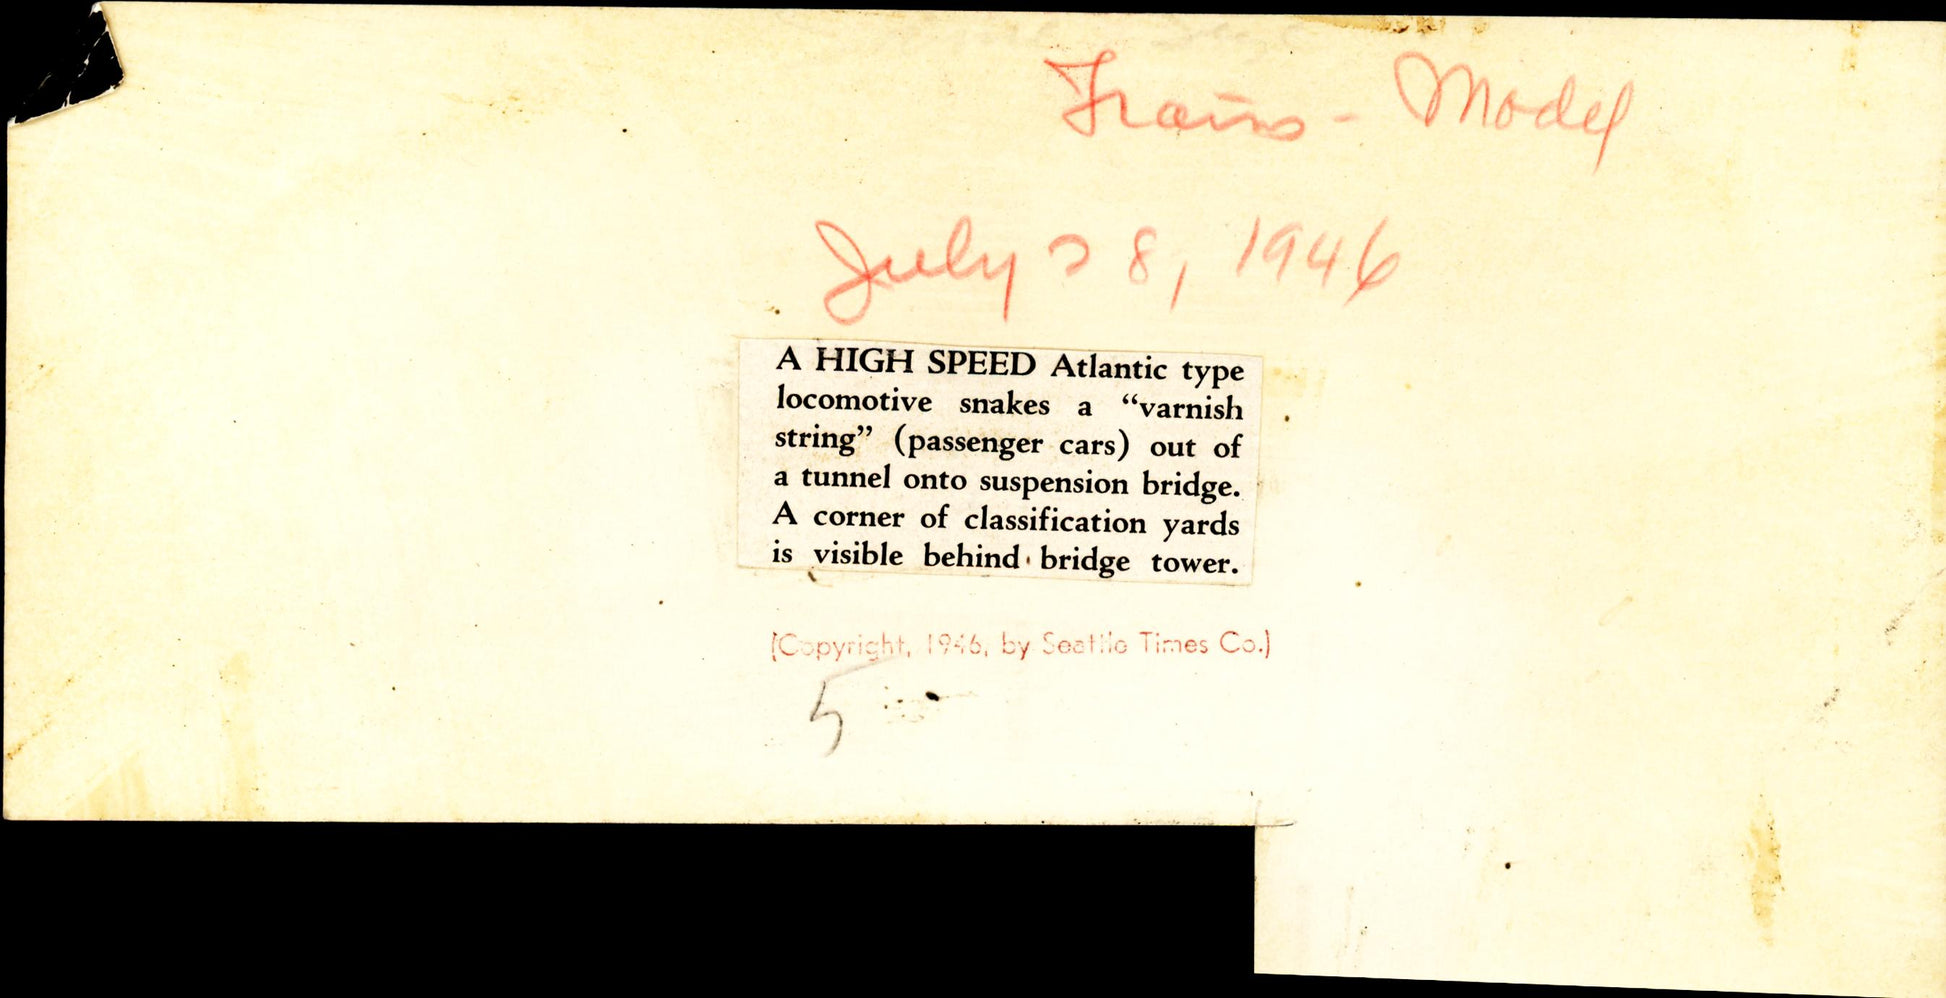 Trains - Model
July 28, 1946
A HIGH SPEED Atlantic type
locomotive snakes a “varnish
string” (passenger cars) out of
a tunnel onto suspension bridge.
A corner of classification yards
is visible behind bridge tower.
(Copyright, 1946, by Seattle Times Co.)
5